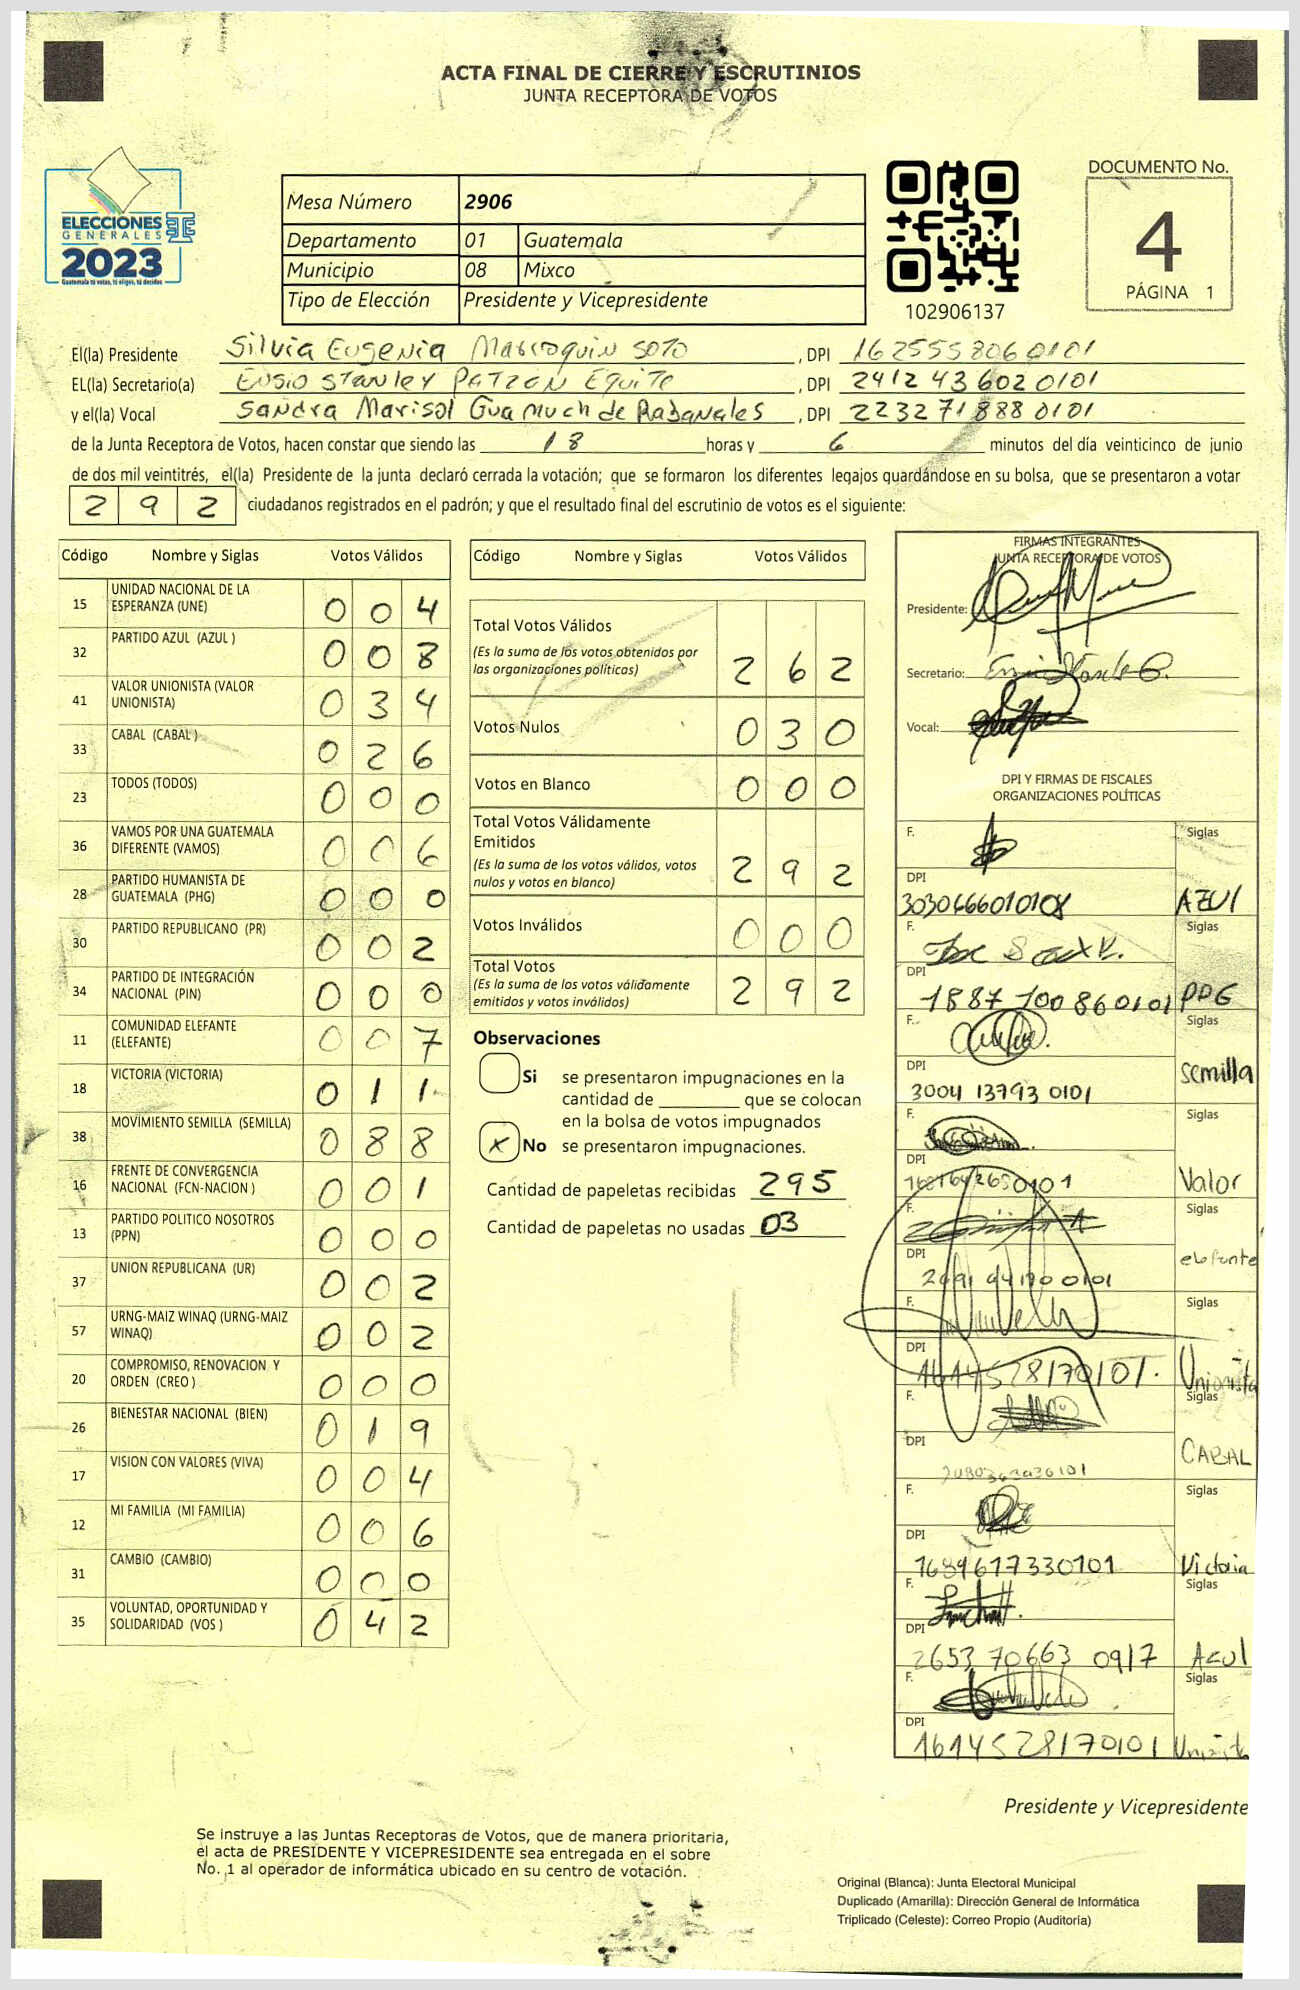 ACTA FINAL DE CIERRE Y ESCRUTINIOS
JUNTA RECEPTORA DE VOTOS
ELECCIONES
GENERALES
2023
Guatemala tú votas, tú eliges, tú decides
Mesa Número 2906
Departamento 01 Guatemala
Municipio 08 Mixco
Tipo de Elección Presidente y Vicepresidente
102906137
DOCUMENTO No.
4
PÁGINA 1
El(la) Presidente Silvia Eugenia Marroquin Soto, DPI 1625558060101
EL(la) Secretario(a) Ensio Stanley Patzan Equite, DPI 2412 43602 0101
y el(la) Vocal Sandra Marisol Guamuch de Rabanales, DPI 2232718880101
de la Junta Receptora de Votos, hacen constar que siendo las 18 horas y 6 minutos del día veinticinco de junio
de dos mil veintitrés, el(la) Presidente de la junta declaró cerrada la votación; que se formaron los diferentes legajos guardándose en su bolsa, que se presentaron a votar
292 ciudadanos registrados en el padrón; y que el resultado final del escrutinio de votos es el siguiente:
Código Nombre y Siglas Votos Válidos
15 UNIDAD NACIONAL DE LA ESPERANZA (UNE) 0 0 4
32 PARTIDO AZUL (AZUL ) 0 0 8
41 VALOR UNIONISTA (VALOR UNIONISTA) 0 3 4
33 CABAL (CABAL ) 0 2 6
23 TODOS (TODOS) 0 0 0
36 VAMOS POR UNA GUATEMALA DIFERENTE (VAMOS) 0 0 6
28 PARTIDO HUMANISTA DE GUATEMALA (PHG) 0 0 0
30 PARTIDO REPUBLICANO (PR) 0 0 2
34 PARTIDO DE INTEGRACIÓN NACIONAL (PIN) 0 0 0
11 COMUNIDAD ELEFANTE (ELEFANTE) 0 0 7
18 VICTORIA (VICTORIA) 0 1 1
38 MOVIMIENTO SEMILLA (SEMILLA) 0 8 8
16 FRENTE DE CONVERGENCIA NACIONAL (FCN-NACION ) 0 0 1
13 PARTIDO POLITICO NOSOTROS (PPN) 0 0 0
37 UNION REPUBLICANA (UR) 0 0 2
57 URNG-MAIZ WINAQ (URNG-MAIZ WINAQ) 0 0 2
20 COMPROMISO, RENOVACION Y ORDEN (CREO ) 0 0 0
26 BIENESTAR NACIONAL (BIEN) 0 1 9
17 VISION CON VALORES (VIVA) 0 0 4
12 MI FAMILIA (MI FAMILIA) 0 0 6
31 CAMBIO (CAMBIO) 0 0 0
35 VOLUNTAD, OPORTUNIDAD Y SOLIDARIDAD (VOS ) 0 4 2
Código Nombre y Siglas Votos Válidos
Total Votos Válidos 2 6 2
(Es la suma de los votos obtenidos por
las organizaciones políticas)
Votos Nulos 0 3 0
Votos en Blanco 0 0 0
Total Votos Válidamente
Emitidos 2 9 2
(Es la suma de los votos válidos, votos
nulos y votos en blanco)
Votos Inválidos 0 0 0
Total Votos 2 9 2
(Es la suma de los votos válidamente
emitidos y votos inválidos)
Observaciones
Si se presentaron impugnaciones en la
cantidad de ________ que se colocan
en la bolsa de votos impugnados
x No se presentaron impugnaciones.
Cantidad de papeletas recibidas 295
Cantidad de papeletas no usadas 03
FIRMAS INTEGRANTES
JUNTA RECEPTORA DE VOTOS
Presidente:
Secretario:
Vocal:
DPI Y FIRMAS DE FISCALES
ORGANIZACIONES POLÍTICAS
F. Siglas
DPI 3030666010108 AZUL
F. Siglas
DPI 1887 100860101 PPG
F. Siglas
DPI 3004 13793 0101 Semilla
F. Siglas
DPI Valor
F. Siglas
DPI elefante
F. Siglas
DPI 1614528170101. Unionista
F. Siglas
DPI CABAL
F. Siglas
DPI 1689617330101 Victoria
F. Siglas
DPI 2653 70663 0917 Azul
F. Siglas
DPI 1614528170101
Presidente y Vicepresidente
Se instruye a las Juntas Receptoras de Votos, que de manera prioritaria,
el acta de PRESIDENTE Y VICEPRESIDENTE sea entregada en el sobre
No. 1 al operador de informática ubicado en su centro de votación.
Original (Blanca): Junta Electoral Municipal
Duplicado (Amarilla): Dirección General de Informática
Triplicado (Celeste): Correo Propio (Auditoría)